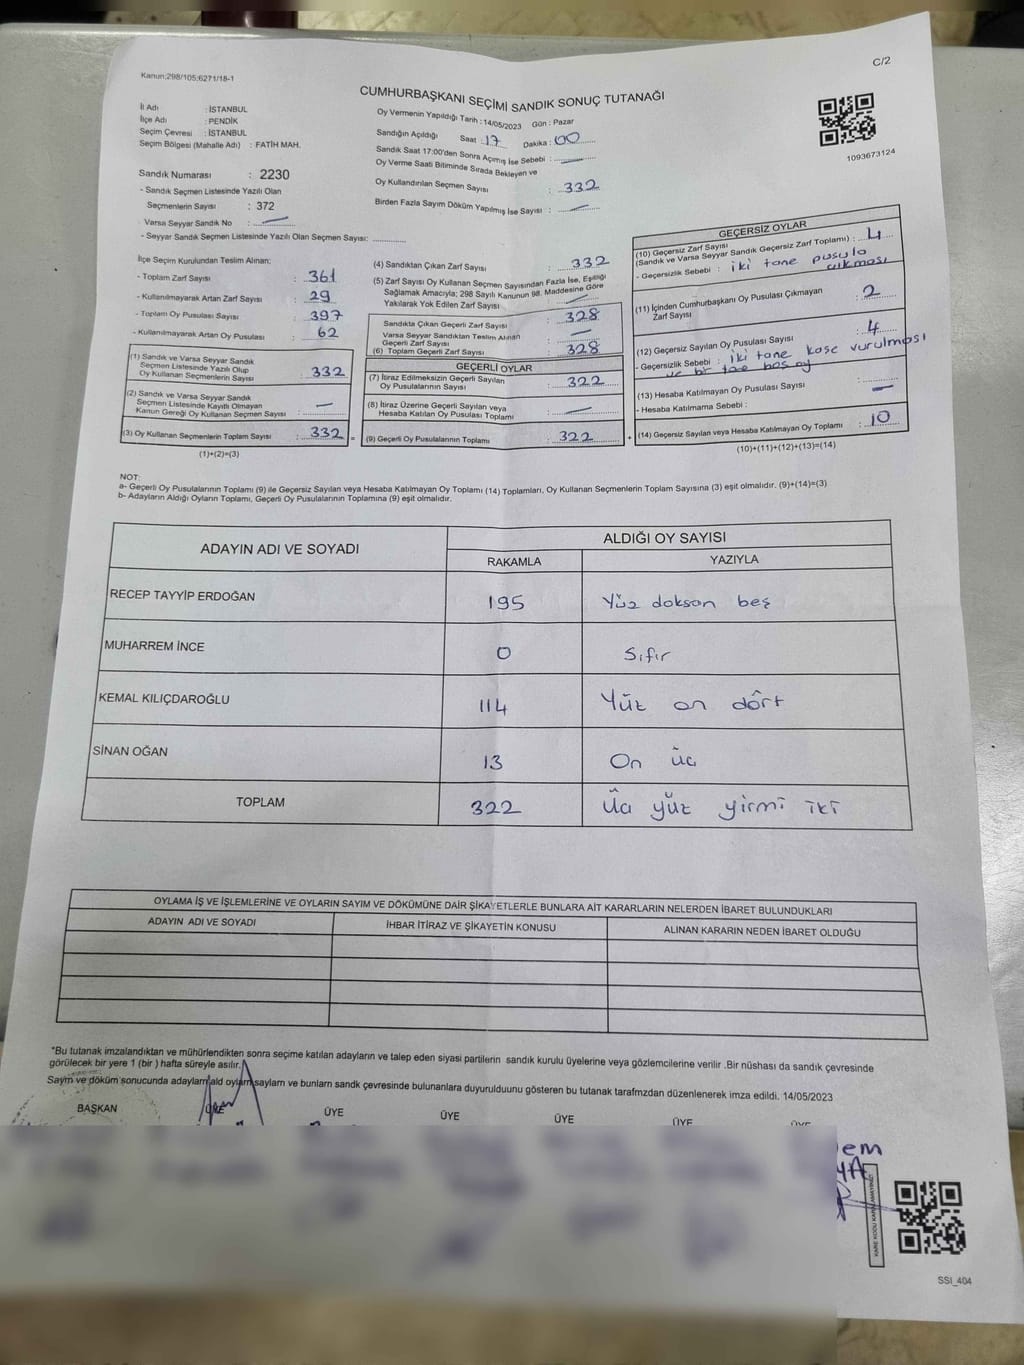 C/2
Kanun:298/105;6271/18-1
CUMHURBAŞKANI SEÇİMİ SANDIK SONUÇ TUTANAĞI
İl Adı : İSTANBUL
İlçe Adı : PENDİK
Seçim Çevresi : İSTANBUL
Seçim Bölgesi (Mahalle Adı) : FATİH MAH.
Oy Vermenin Yapıldığı Tarih : 14/05/2023 Gün : Pazar
Sandığın Açıldığı Saat : 17 Dakika : 00
Sandık Saat 17:00'den Sonra Açmış İse Sebebi : —
Oy Verme Saati Bitiminde Sırada Bekleyen ve
Oy Kullandırılan Seçmen Sayısı : 332
Birden Fazla Sayım Döküm Yapılmış İse Sayısı : —
1093673124
Sandık Numarası : 2230
- Sandık Seçmen Listesinde Yazılı Olan
Seçmenlerin Sayısı : 372
Varsa Seyyar Sandık No : —
- Seyyar Sandık Seçmen Listesinde Yazılı Olan Seçmen Sayısı: ..............
İlçe Seçim Kurulundan Teslim Alınan:
- Toplam Zarf Sayısı : 361
- Kullanılmayarak Artan Zarf Sayısı : 29
- Toplam Oy Pusulası Sayısı : 397
- Kullanılmayarak Artan Oy Pusulası : 62
(1) Sandık ve Varsa Seyyar Sandık
Seçmen Listesinde Yazılı Olup
Oy Kullanan Seçmenlerin Sayısı : 332
(2) Sandık ve Varsa Seyyar Sandık
Seçmen Listesinde Kayıtlı Olmayan
Kanun Gereği Oy Kullanan Seçmen Sayısı : —
(3) Oy Kullanan Seçmenlerin Toplam Sayısı : 332 =
(1)+(2)=(3)
(4) Sandıktan Çıkan Zarf Sayısı : 332
(5) Zarf Sayısı Oy Kullanan Seçmen Sayısından Fazla İse, Eşitliği
Sağlamak Amacıyla; 298 Sayılı Kanunun 98. Maddesine Göre
Yakılarak Yok Edilen Zarf Sayısı : —
Sandıkta Çıkan Geçerli Zarf Sayısı : 328
Varsa Seyyar Sandıktan Teslim Alınan
Geçerli Zarf Sayısı : —
(6) Toplam Geçerli Zarf Sayısı : 328
GEÇERLİ OYLAR
(7) İtiraz Edilmeksizin Geçerli Sayılan
Oy Pusulalarının Sayısı : 322
(8) İtiraz Üzerine Geçerli Sayılan veya
Hesaba Katılan Oy Pusulası Toplamı : —
(9) Geçerli Oy Pusulalarının Toplamı : 322 +
GEÇERSİZ OYLAR
(10) Geçersiz Zarf Sayısı
(Sandık ve Varsa Seyyar Sandık Geçersiz Zarf Toplamı) : 4
- Geçersizlik Sebebi : iki tane pusula
çıkması
(11) İçinden Cumhurbaşkanı Oy Pusulası Çıkmayan
Zarf Sayısı : 2
(12) Geçersiz Sayılan Oy Pusulası Sayısı : 4
- Geçersizlik Sebebi : iki tane kaşe vurulması
ve bir tane boş oy
(13) Hesaba Katılmayan Oy Pusulası Sayısı : —
- Hesaba Katılmama Sebebi :
(14) Geçersiz Sayılan veya Hesaba Katılmayan Oy Toplamı : 10
(10)+(11)+(12)+(13)=(14)
NOT:
a- Geçerli Oy Pusulalarının Toplamı (9) ile Geçersiz Sayılan veya Hesaba Katılmayan Oy Toplamı (14) Toplamları, Oy Kullanan Seçmenlerin Toplam Sayısına (3) eşit olmalıdır. (9)+(14)=(3)
b- Adayların Aldığı Oyların Toplamı, Geçerli Oy Pusulalarının Toplamına (9) eşit olmalıdır.
ADAYIN ADI VE SOYADI
ALDIĞI OY SAYISI
RAKAMLA YAZIYLA
RECEP TAYYİP ERDOĞAN 195 Yüz doksan beş
MUHARREM İNCE 0 Sıfır
KEMAL KILIÇDAROĞLU 114 Yüz on dört
SİNAN OĞAN 13 On üç
TOPLAM 322 Üç yüz yirmi iki
OYLAMA İŞ VE İŞLEMLERİNE VE OYLARIN SAYIM VE DÖKÜMÜNE DAİR ŞİKAYETLERLE BUNLARA AİT KARARLARIN NELERDEN İBARET BULUNDUKLARI
ADAYIN ADI VE SOYADI İHBAR İTİRAZ VE ŞİKAYETİN KONUSU ALINAN KARARIN NEDEN İBARET OLDUĞU
*Bu tutanak imzalandıktan ve mühürlendikten sonra seçime katılan adayların ve talep eden siyasi partilerin sandık kurulu üyelerine veya gözlemcilerine verilir .Bir nüshası da sandık çevresinde
görülecek bir yere 1 (bir ) hafta süreyle asılır.
Sayım ve döküm sonucunda adayların ald oyların saylam ve bunların sandk çevresinde bulunanlara duyurulduunu gösteren bu tutanak tarafmzdan düzenlenerek imza edildi. 14/05/2023
BAŞKAN ÜYE ÜYE ÜYE ÜYE ÜYE ÜYE
SSI_404